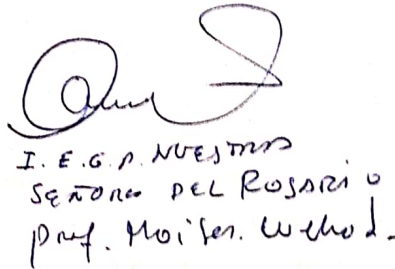 I. E. G. P. NUESTRA
SEÑORA DEL ROSARIO
Prof. Moises.